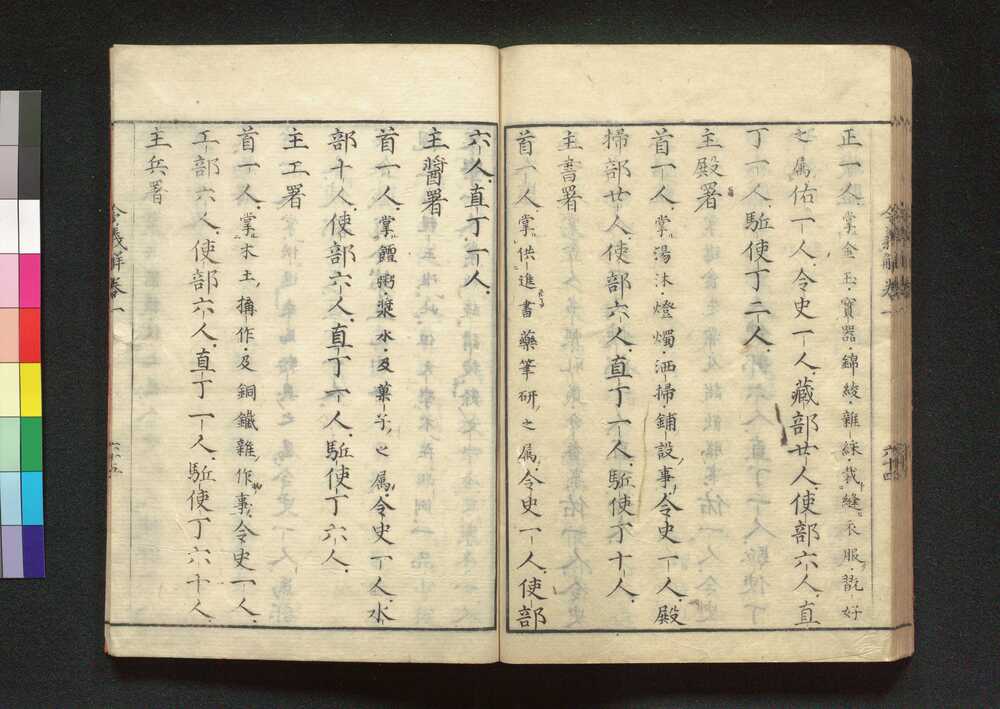 正一人掌金玉寶器錦綾雜綵裁縫衣服翫好
之属佑一人令史一人藏部廿人使部六人直
丁一人駈使丁二人
主殿署
首一人掌湯沐燈燭洒掃鋪設事令史一人殿
掃部廿人使部六人直丁一人駈使丁十人
主書署
首一人掌供進書藥筆研之属令史一人使部
六人直丁一人
主醬署
首一人掌饘粥漿水及菓子之属令史一人水
部十人使部六人直丁一人駈使丁六人
主工署
首一人掌木土搆作及銅鐵雜作事令史一人
工部六人使部六人直丁一人駈使丁六十人
主兵署
令義解卷一
六十四
令義解卷一
六十五